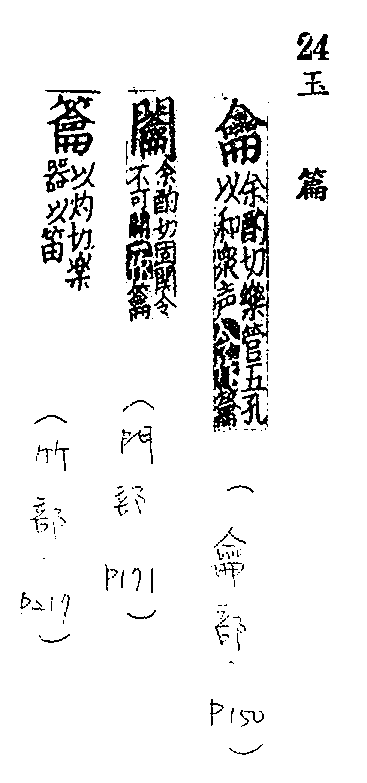 24
玉篇
龠 余酌切樂管五孔
以和衆声
(龠部.P150)
闟 余酌切固関令
不可開
(門部 P171)
籥 以灼切樂
器以笛
(竹部.P217)